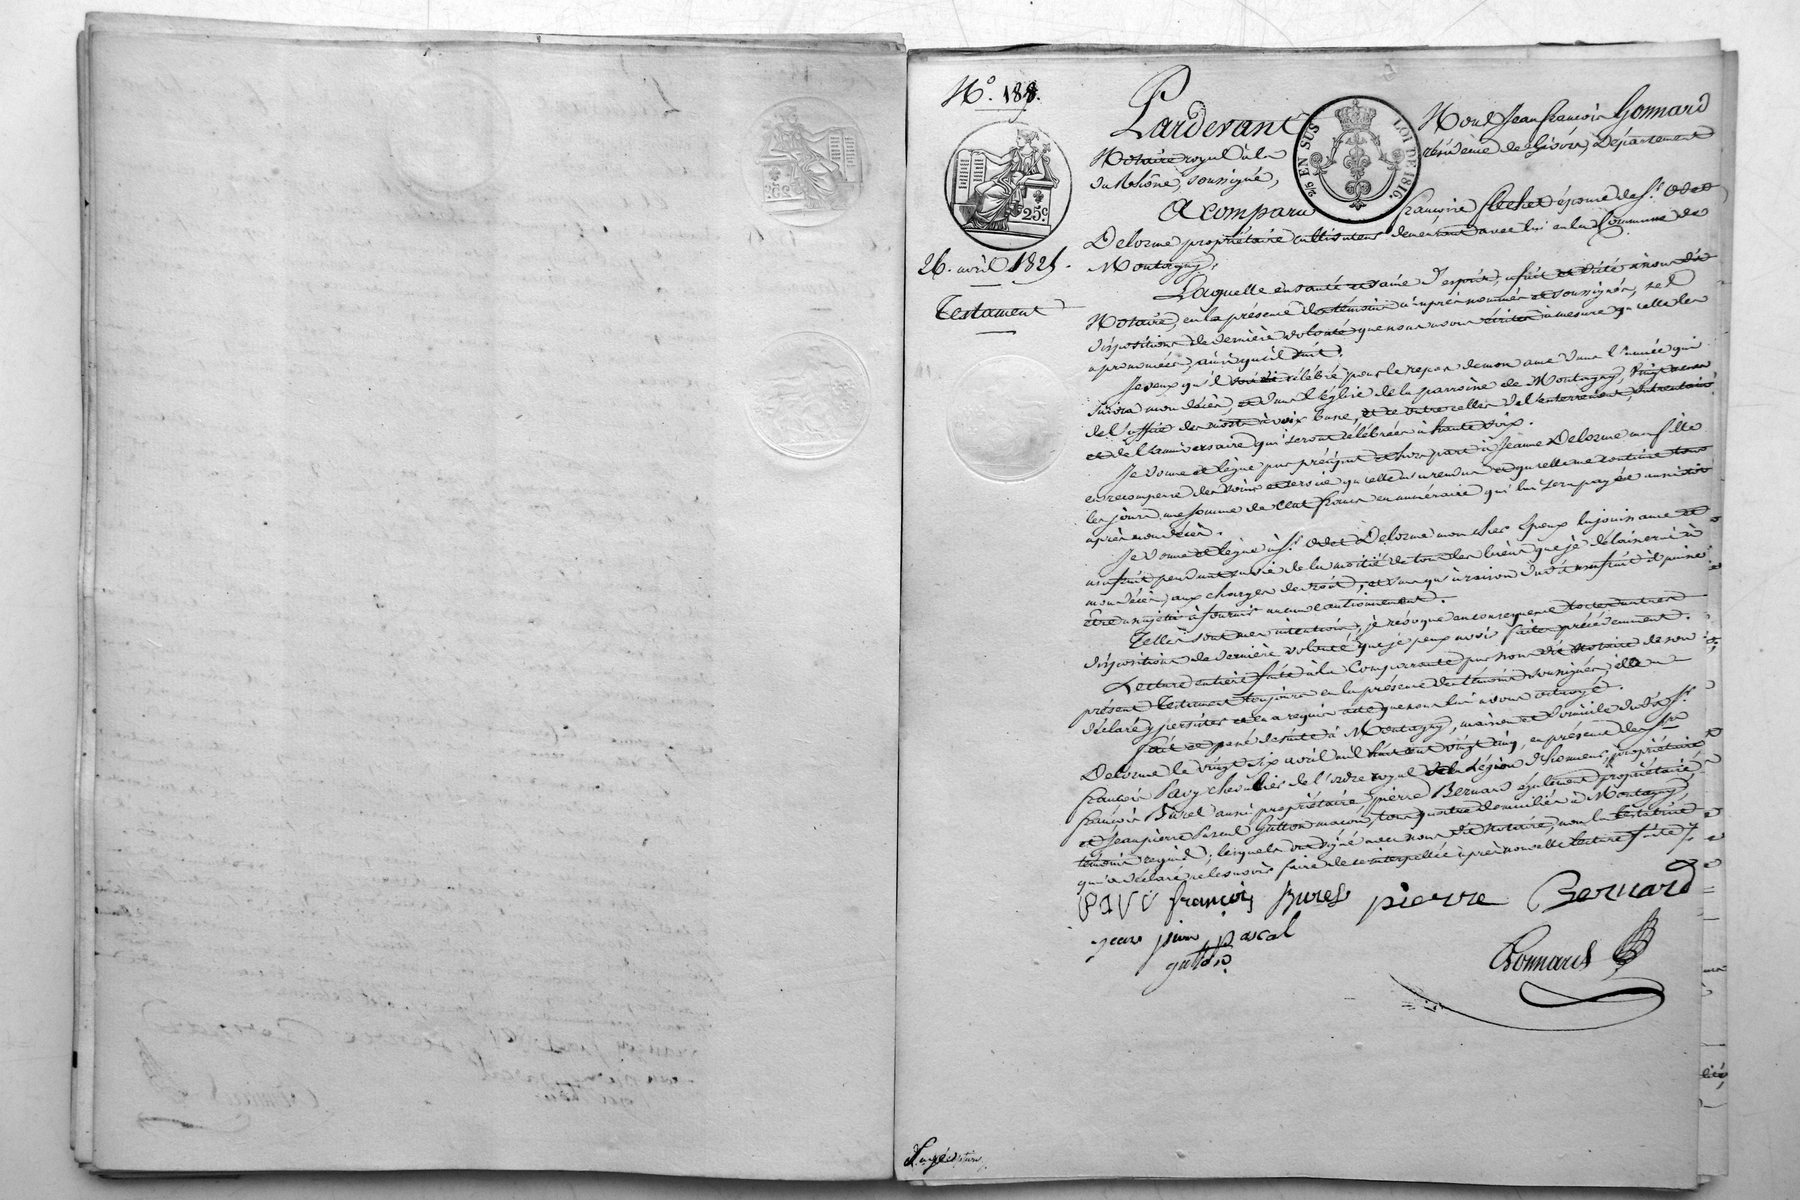 N.º 188.
25c
26. avril 1825.
Testament
2/5 EN SUS
LOI DE 1816.
Pardevant Nous Jean françois Gonnard
Notaire royal à la résidence de Givors, Département
du Rhône, soussigné,
A comparu françoise flechet épouse de Sr. Odet
Delorme propriétaire cultivateur demeurant avec lui en la Commune de
Montagny;
Laquelle en santé et saine d'esprit, a fait et dicté à nous dit
Notaire, en la présence des témoins ci-après nommés et soussignés, ses
dispositions de dernière volonté que nous avons écrites à mesure qu'elle les
a prononcées, ainsi qu'il suit.
Je veux qu'il soit célébré pour le repos de mon ame dans l'année qui
suivra mon décès, et dans l'église de la parroisse de Montagny, vingt messes
de l'office des morts à voix basse, et ce outre celles de l'enterrement,
et de l'anniversaire qui seront célébrées à haute voix.
Je donne et lègue par préciput et hors part à Jeanne Delorme ma fille
en recompense des soins et service qu'elle m'a rendus et qu'elle me continue tous
les jours, une somme de cent francs en numéraire qui lui sera payée aussitôt
après mon décès.
Je donne et lègue à Sr. Odet Delorme mon cher Epoux la jouissance et
usufruit pendant sa vie de la moitié de tous les biens que je délaisserai à
mon décès, aux charges de droit, et sans qu'à raison dudit usufruit il puisse
être assujetti à fournir aucun cautionnement.
Telles sont mes intentions, je révoque en conséquence toutes autres
dispositions de dernière volonté que je peux avoir faites précédemment.
Lecture entière faite à la Comparante par nous dit Notaire de son
présent Testament toujours en la présence des témoins soussignés, elle a
déclaré y persister et en a requis acte que nous lui avons octroyé.
fait et passé de suite à Montagny, maison et domicile dudit Sr.
Delorme le vingt six avril mil huit cent vingt cinq, en présence de Sr.
françois Pavy chevalier de l'ordre royal de la Légion d'honneur, propriétaire
françois Burel aussi propriétaire, pierre Bernard également propriétaire
et Jean pierre Pascal Gutton maçon, tous quatre domiciliés à Montagny,
témoins requis; lesquels ont signé avec nous dit Notaire, non la testatrice
qui a déclaré ne le savoir faire de ce interpellée après nouvelle lecture faite
PAVY françois Burel pierre Bernard
jean pierre pascal
gutton
Gonnard